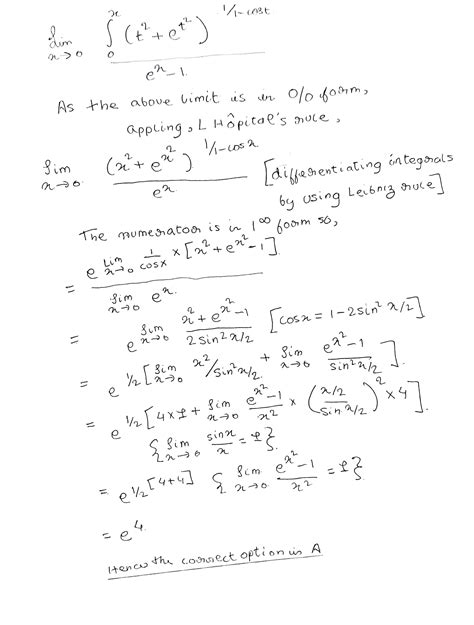 lim x→0 ∫₀ˣ (t² + e^(t²))^(1/1-cost) / e^x - 1
As the above limit is in 0/0 form,
appling, L Hôpital's rule,
lim x→0 (x² + e^(x²))^(1/1-cosx) / e^x [differentiating integrals
by using Leibniz rule]
The numerator is in 1^∞ form so,
= e^(Lim x→0 1/cosx × [x² + e^(x²) - 1]) / lim x→0 e^x
= e^(lim x→0 (x² + e^(x²) - 1) / 2sin² x/2) [cosx = 1 - 2sin² x/2]
= e^(1/2 [lim x→0 x²/sin² x/2 + lim x→0 (e^(x²) - 1) / sin² x/2])
= e^(1/2 [4×1 + lim x→0 (e^(x²) - 1) / x² × (x/2 / sin x/2)² × 4])
{lim x→0 sinx/x = 1}
= e^(1/2 [4+4]) {lim x→0 (e^(x²) - 1) / x² = 1}
= e^4
Hence the correct option is A